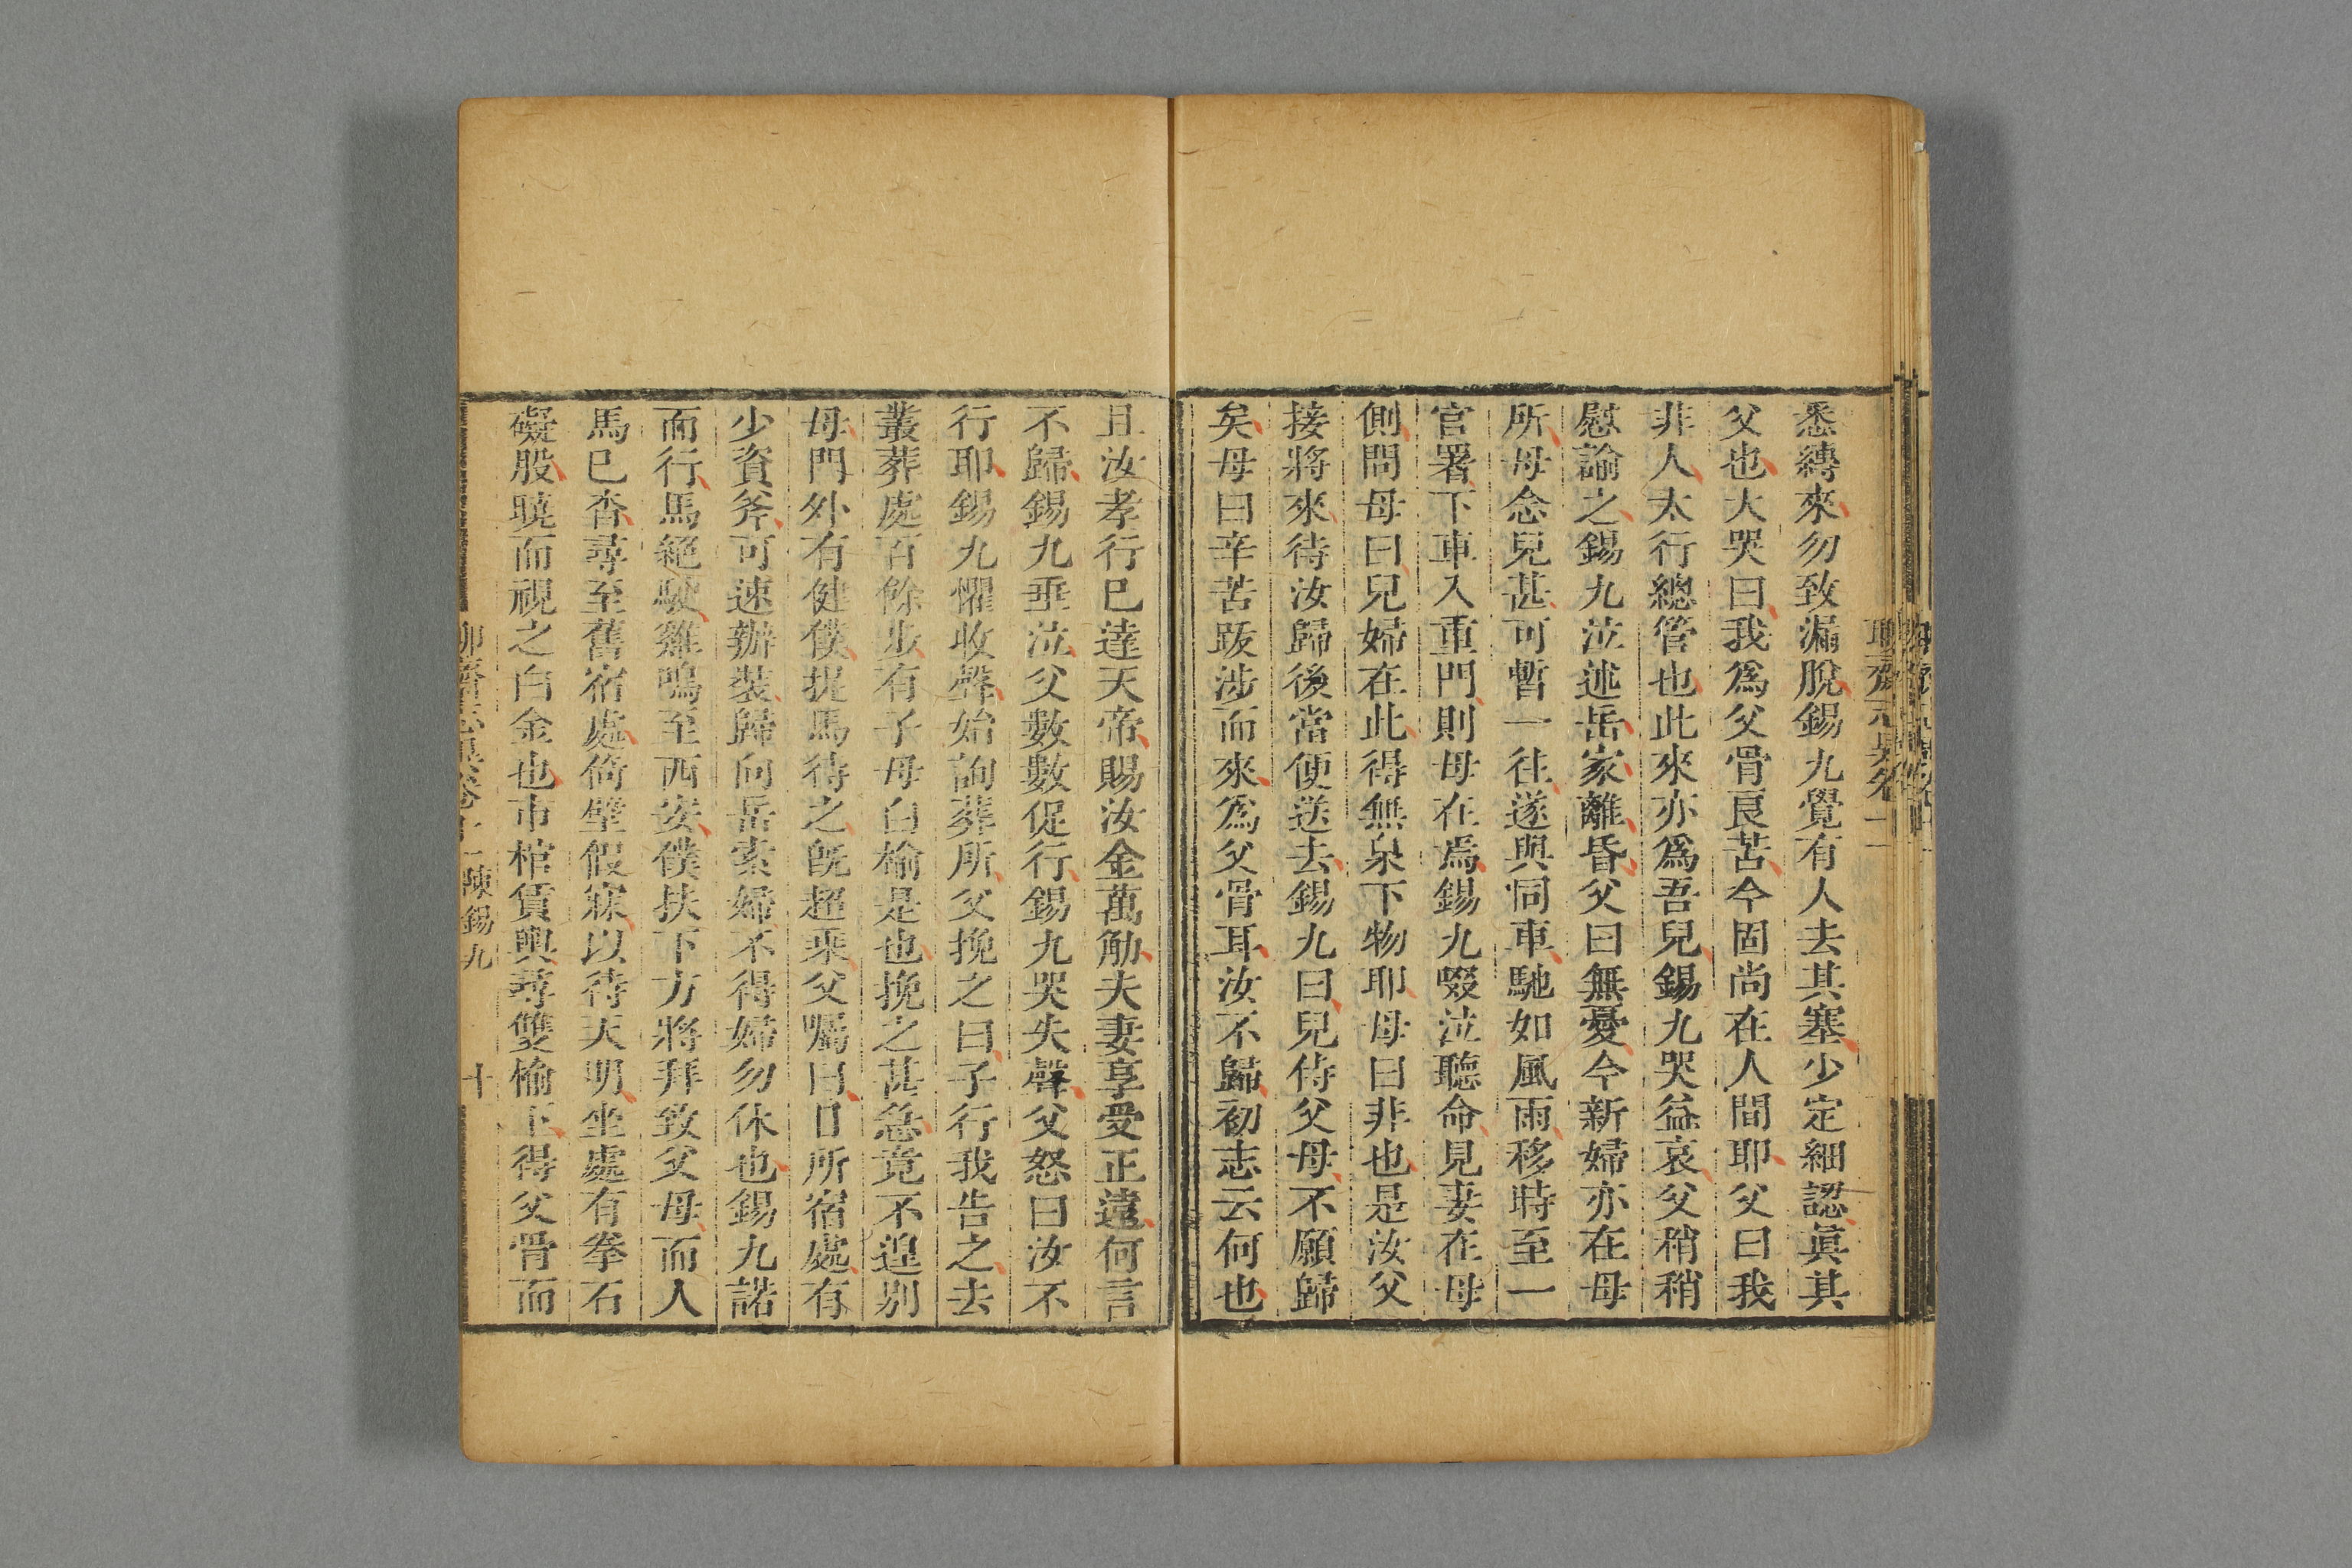 悉縛來勿致漏脫錫九覺有人去其塞少定細認眞其
父也大哭曰我爲父骨良苦今固尚在人間耶父曰我
非人太行總管也此來亦爲吾兒錫九哭益哀父稍稍
慰諭之錫九泣述岳家離昏父曰無憂今新婦亦在母
所母念兒甚可暫一往遂與同車馳如風雨移時至一
官署下車入重門則母在焉錫九啜泣聽命見妻在母
側問母曰兒婦在此得無泉下物耶母曰非也是汝父
接將來待汝歸後當便送去錫九曰兒侍父母不願歸
矣母曰辛苦跋涉而來爲父骨耳汝不歸初志云何也
且汝孝行巳達天帝賜汝金萬觔夫妻享受正遠何言
不歸錫九垂泣父數數促行錫九哭失聲父怒曰汝不
行耶錫九懼收聲始詢葬所父挽之曰子行我告之去
叢葬處百餘步有子母白榆是也挽之甚急竟不遑別
母門外有健僕捉馬待之旣超乘父囑曰日所宿處有
少資斧可速辦裝歸向岳索婦不得婦勿休也錫九諾
而行馬絕駛雞鳴至西安僕扶下方將拜致父母而人
馬巳杳尋至舊宿處倚壁假寐以待天明坐處有拳石
礙股曉而視之白金也市棺賃輿尋雙榆下得父骨而
陳錫九
十